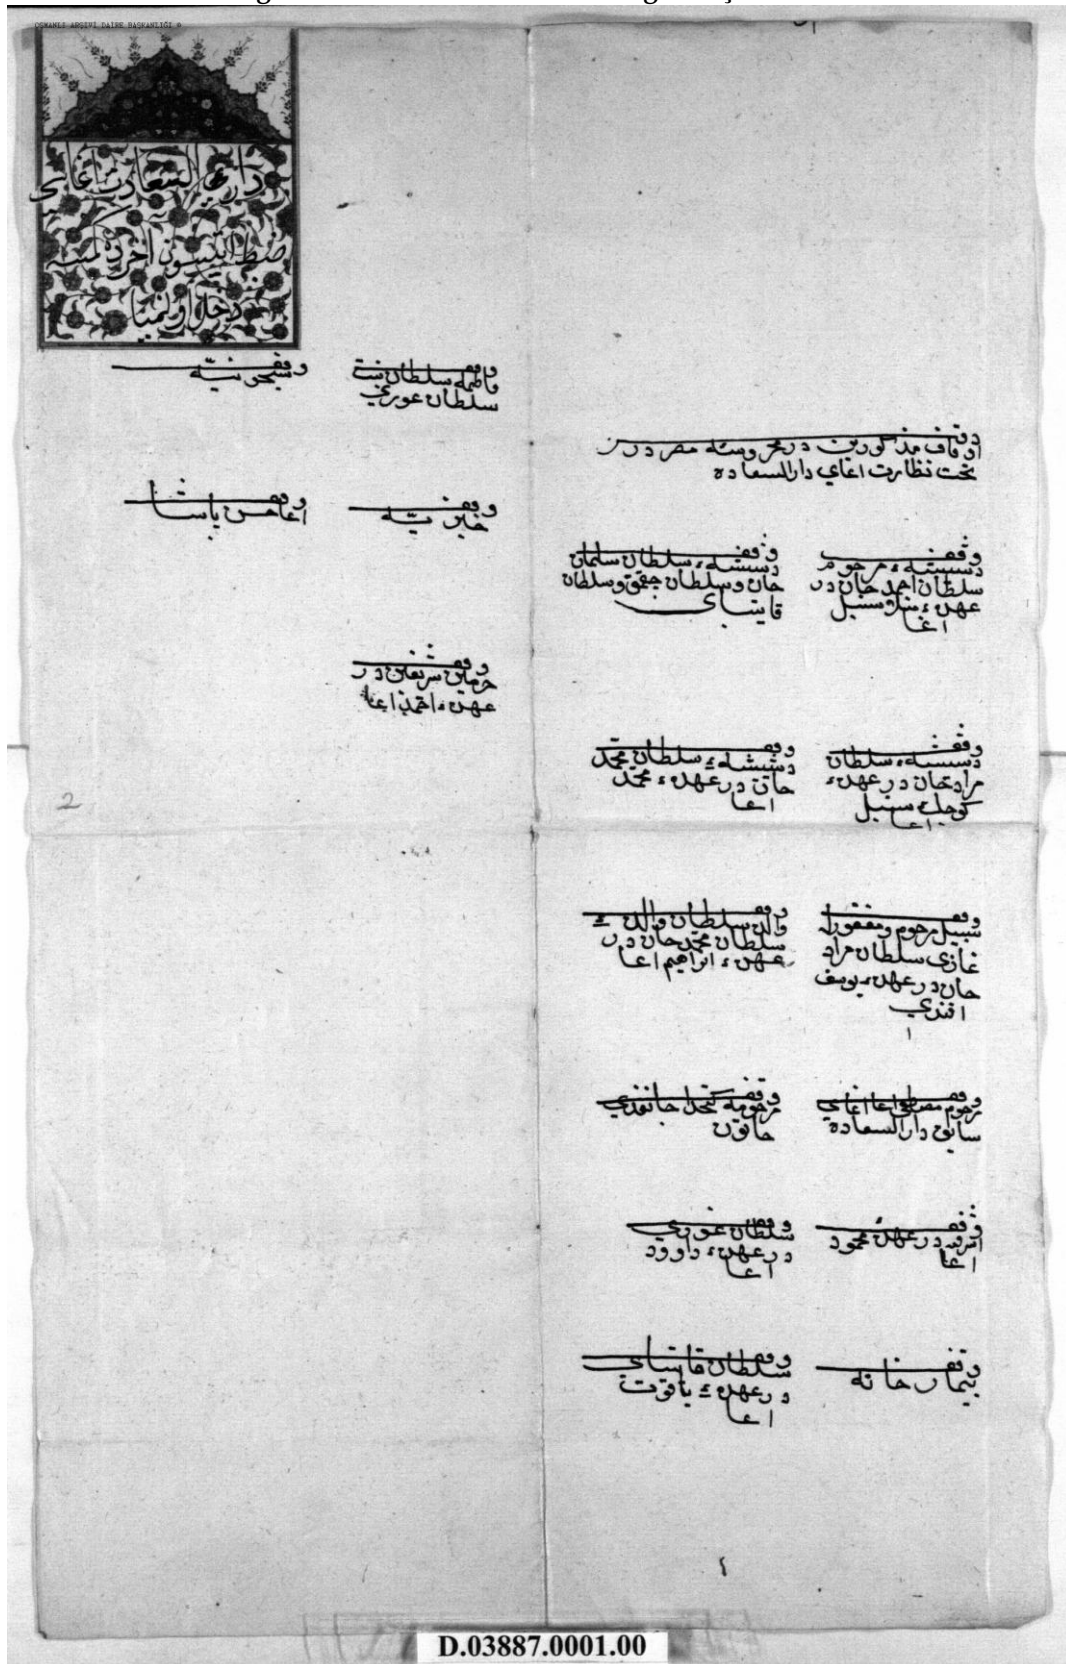 OSMANLI ARŞİVİ DAİRE BAŞKANLIĞI
دار السعادت اغاسی
ضبط ایتسون آخر کمسنه
دخل اولنمیا
اوقاف مذکورین در محروسه مصر در
تحت نظارت اغای دار السعاده
وقف
دشیشهء مرحوم
سلطان احمد خان در
عهدهء سنبل
اغا
وقف
دشیشهء سلطان سلیمان
خان و سلطان جقمق و سلطان
قایتبای
وقف
دشیشهء سلطان
مراد خان در عهدهء
کوجك سنبل
اغا
وقف
دشیشهء سلطان محمد
خان در عهدهء محمد
اغا
وقف
سبیل مرحوم و مغفور له
غازی سلطان مراد
خان در عهدهء یوسف
افندی
وقف
والده سلطان والدهء
سلطان محمد خان در
عهدهء ابراهیم اغا
وقف
مرحوم مصطفی اغا اغای
سابق دار السعاده
وقف
مرحومه کتخدا جانفدی
خاتون
وقف
در عهدهء محمود
اغا
وقف
سلطان غوری
در عهدهء داوود
اغا
وقف
بیمارخانه
وقف
سلطان قایتبای
در عهدهء یاقوت
اغا
وقف
فاطمه سلطان بنت
سلطان غوری
وقف
شیخونیه
وقف
خیریه
وقف
اغا حسن پاشا
وقف
حرمین شریفین در
عهدهء احمد اغا
2
D.03887.0001.00